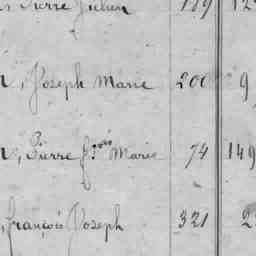 Pierre Julien 189 12
, Joseph Marie 200 9
, Pierre Jques Marie 74 149
, françois Joseph 321 2